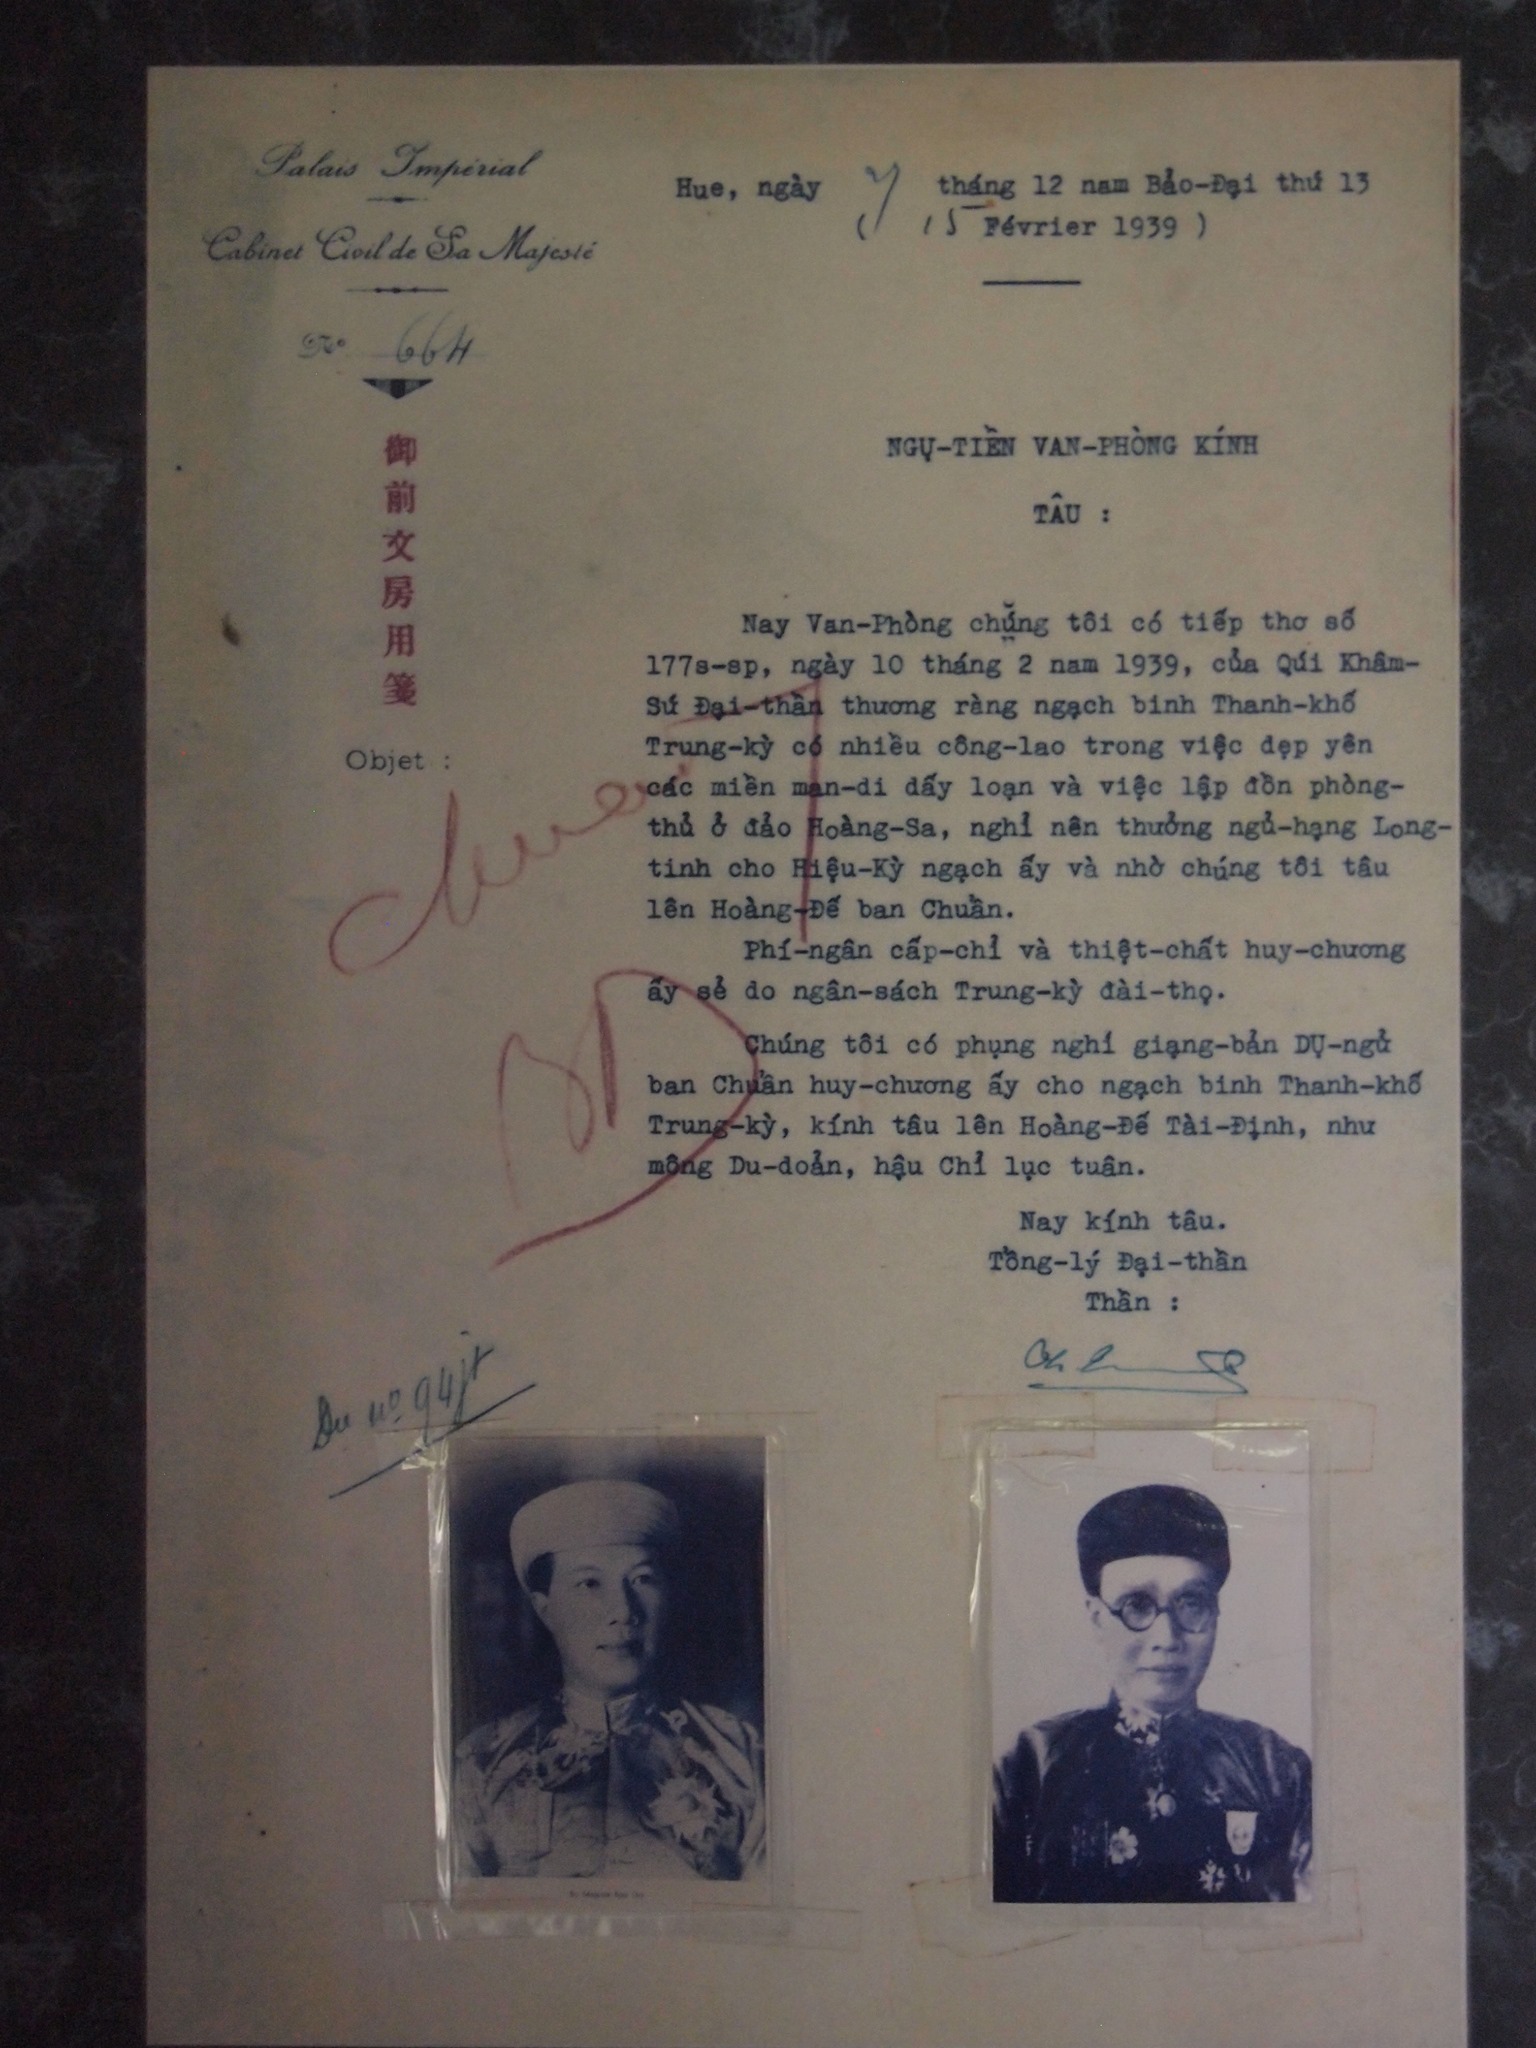 Palais Impérial
Cabinet Civil de Sa Majesté
Nº 664
御前文房用箋
Objet :
Hue, ngày 7 tháng 12 nam Bảo-Đại thứ 13
( 15 Février 1939 )
NGỰ-TIỀN VAN-PHÒNG KÍNH
TÂU :
Nay Van-Phòng chúng tôi có tiếp thơ số
177s-sp, ngày 10 tháng 2 nam 1939, của Qúi Khâm-
Sứ Đại-thần thương ràng ngạch binh Thanh-khố
Trung-kỳ có nhiều công-lao trong việc dẹp yên
các miền man-di dấy loạn và việc lập đồn phòng-
thủ ở đảo Hoàng-Sa, nghỉ nên thưởng ngủ-hạng Long-
tinh cho Hiệu-Kỳ ngạch ấy và nhờ chúng tôi tâu
lên Hoàng-Đế ban Chuẩn.
Phí-ngân cấp-chỉ và thiệt-chất huy-chương
ấy sẻ do ngân-sách Trung-kỳ đài-thọ.
Chúng tôi có phụng nghỉ giạng-bản DỤ-ngử
ban Chuẩn huy-chương ấy cho ngạch binh Thanh-khố
Trung-kỳ, kính tâu lên Hoàng-Đế Tài-Định, như
mông Du-doản, hậu Chỉ lục tuân.
Nay kính tâu.
Tổng-lý Đại-thần
Thần :
BD
Du nº 94